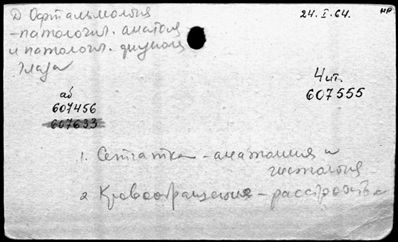 Д Офтальмология 24.I.64. нр
-патологич. анатом
и патологич. физиол
глаза
Чит.
аб 607555
607456
607633
1. Сетчатка - анатомия и
гистология
2 Кровообращение - расстройства